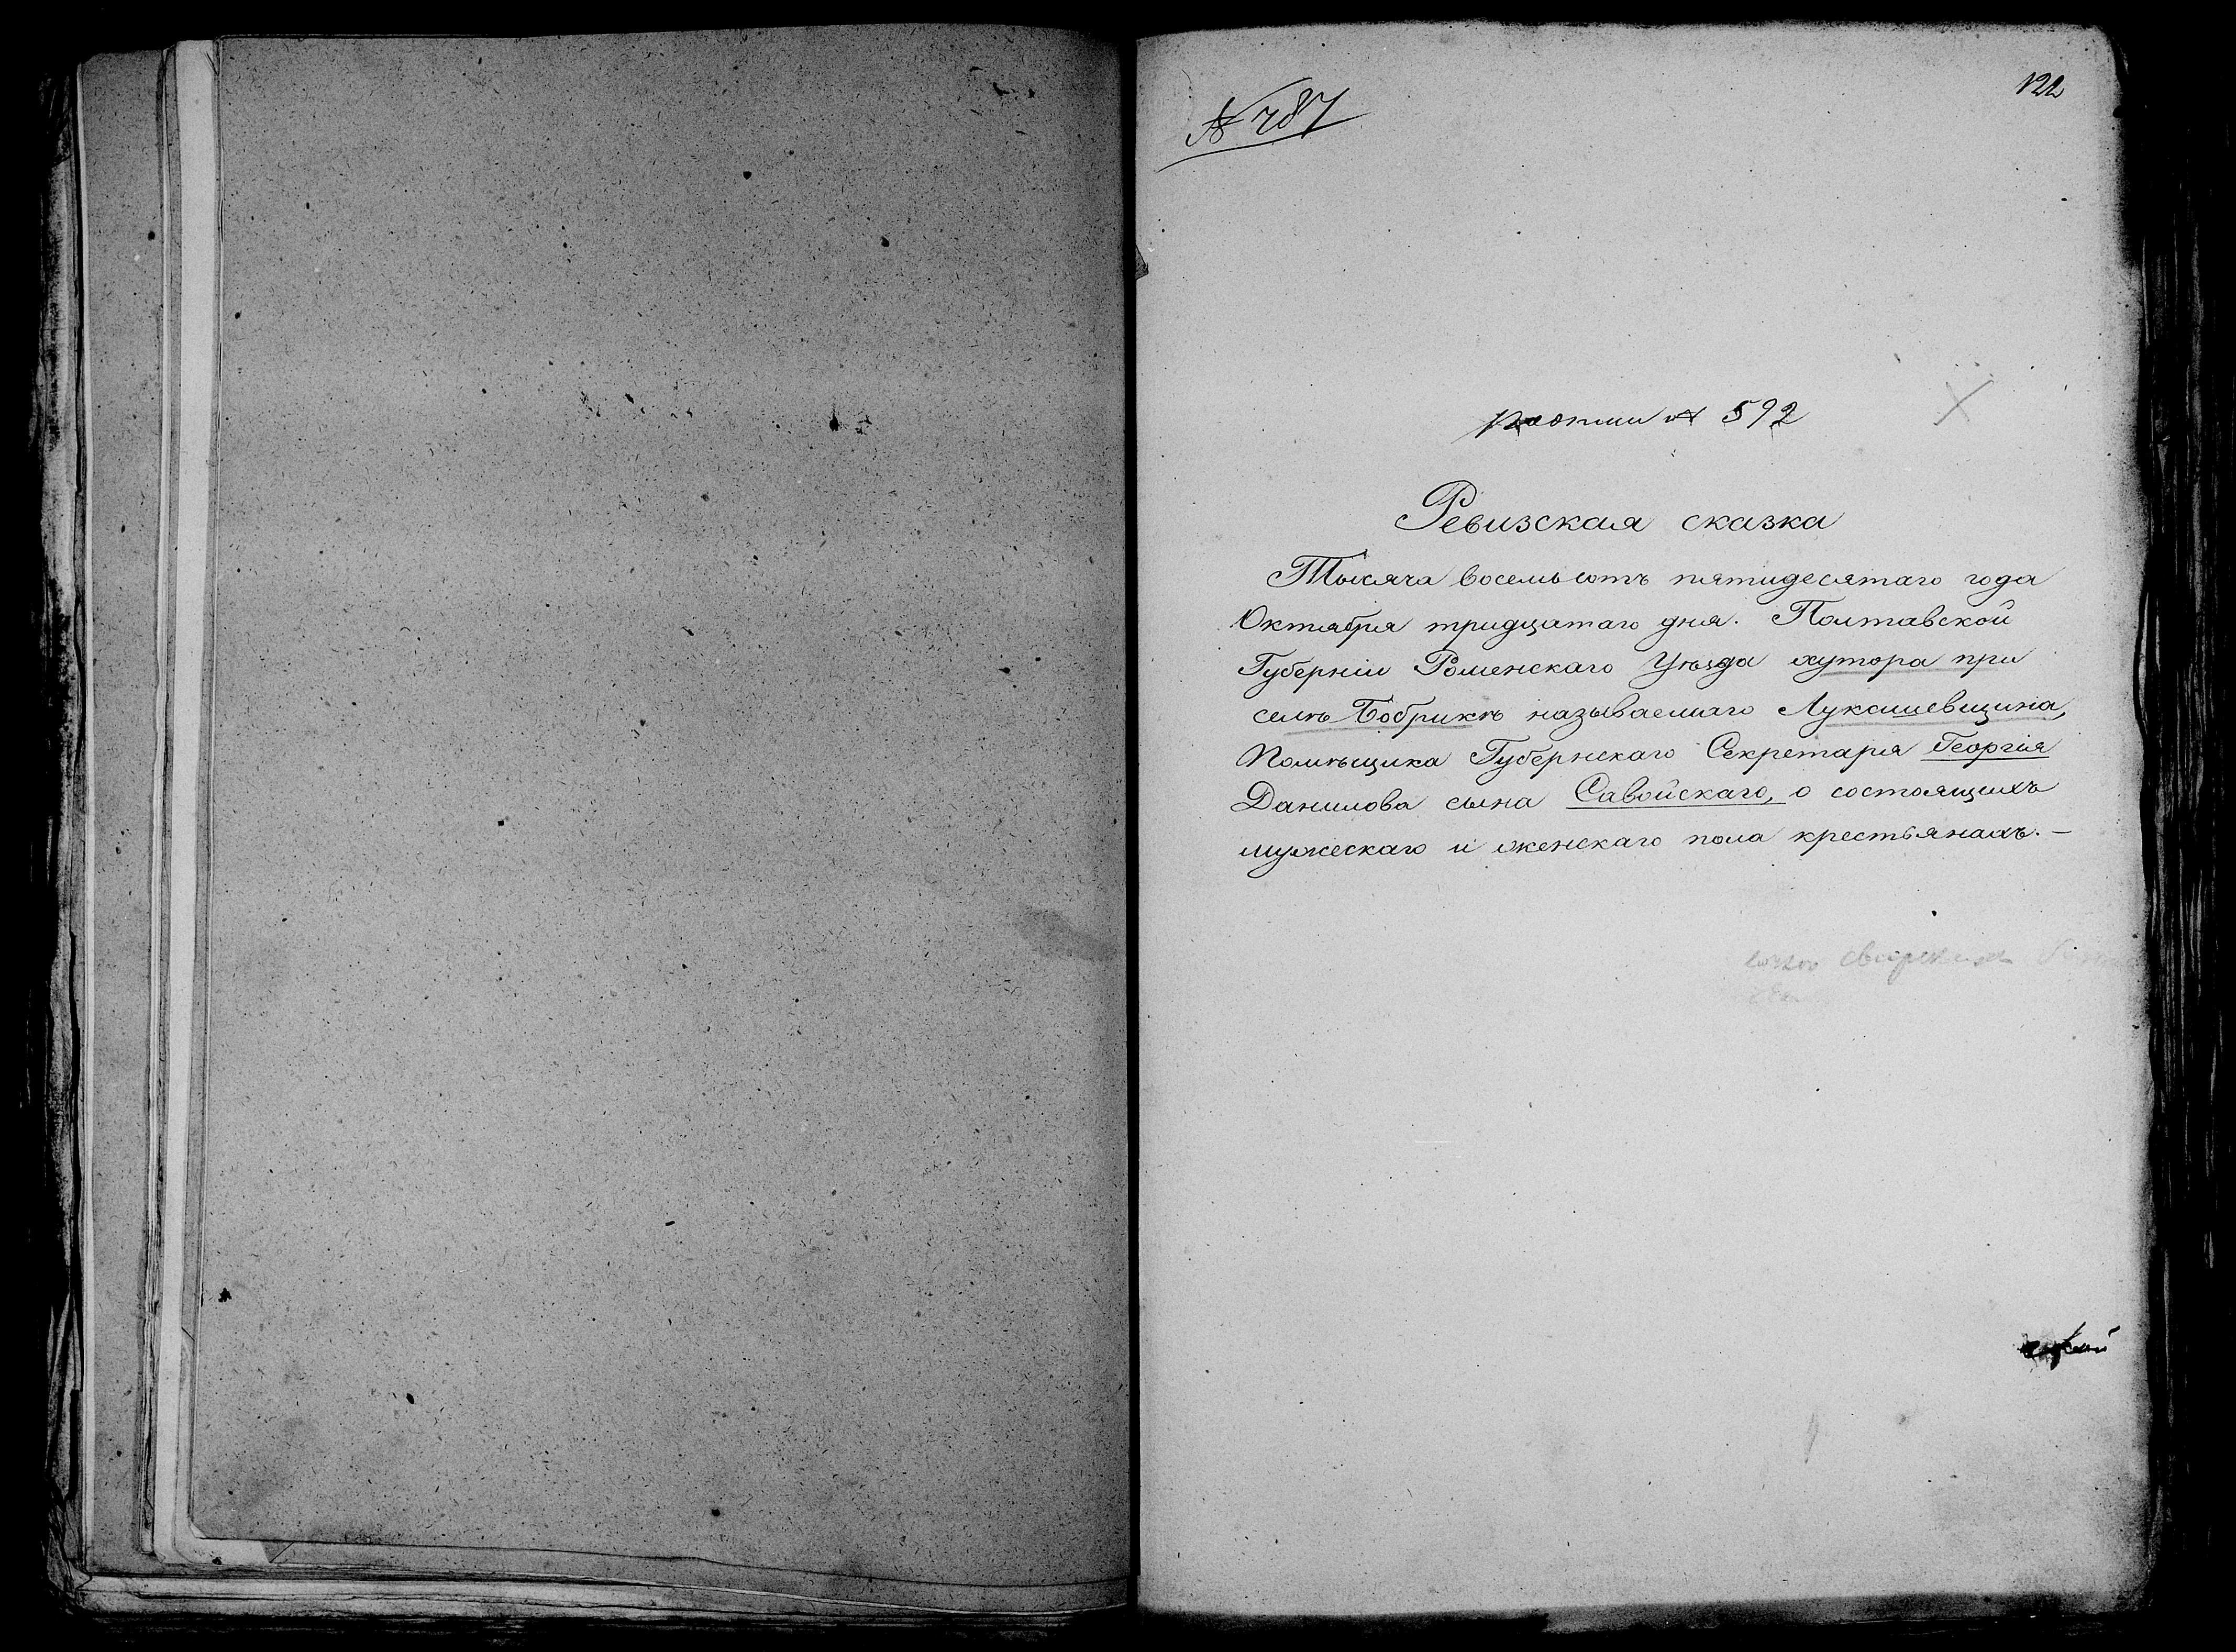 122
№ 787
№ 592
Ревизская сказка
Тысяча восемь сотъ пятидесятаго года
Октября тридцатаго дня. Полтавской
Губерніи Роменскаго Уѣзда хутора при
селѣ Бобрикѣ называемаго Луксишевщина,
Помѣщика Губернскаго Секретаря Георгія
Данилова сына Савойскаго, о состоящихъ
мужескаго и женскаго пола крестьянахъ.—